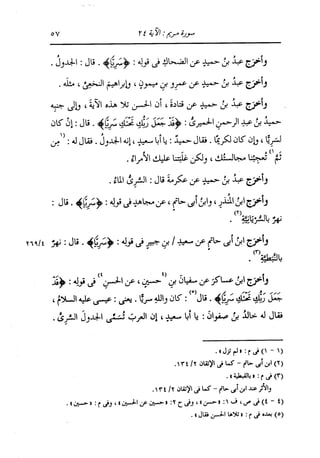 سورة مريم : الآية ٢٤
٥٧
وأخرج عبدُ بنُ حميدٍ عن الضحاكِ في قوله : ﴿سَرِيًّا﴾ . قال : الجدولُ .
وأخرج عبدُ بنُ حميدٍ عن عمرو بنِ ميمونٍ ، وإبراهيمَ النخعيِّ ، مثلَه .
وأخرج عبدُ بنُ حميدٍ عن قتادةَ ، أن الحسنَ تلا هذه الآيةَ ، وإلى جنبِه
حميدُ بنُ عبدِ الرحمنِ الحميريُّ : ﴿قَدْ جَعَلَ رَبُّكِ تَحْتَكِ سَرِيًّا﴾ . قال : إنْ كان
لسَريًّا ، وإن كان لكريمًا . فقال حميدٌ : يا أبا سعيدٍ ، إنه الجدولُ . فقال له : (١ من
ثَمَّ ١) تُعجِبُنا مجالستُك ، ولكن غلَبتنا عليك الأمراءُ .
وأخرج عبدُ بنُ حميدٍ عن عكرمةَ قال : السَّرِيُّ الماءُ .
وأخرج ابنُ المنذرِ ، وابنُ أبي حاتمٍ ، عن مجاهدٍ في قوله : ﴿سَرِيًّا﴾ . قال :
نهرٌ بالسُّريانيةِ (٢) .
وأخرج ابنُ أبي حاتمٍ عن سعيدِ / بنِ جبيرٍ في قوله : ﴿سَرِيًّا﴾ . قال : نهرٌ ٢٦٩/٤
بالنَّبَطيةِ (٣) .
وأخرج ابنُ عساكرَ عن سفيانَ بنِ (٤ حسينٍ ، عن الحسنِ ٤) في قوله : ﴿قَدْ
جَعَلَ رَبُّكِ تَحْتَكِ سَرِيًّا﴾ . قال (٥) : كان واللهِ سريًّا . يعنى : عيسى عليه السلامُ ،
فقال له خالدُ بنُ صفوانَ : يا أبا سعيدٍ ، إن العربَ تُسَمِّى الجدولَ السَّرِىَّ .
(١ - ١) في م : « لم تزل » .
(٢) ابن أبي حاتم - كما في الإتقان ٢/ ١٣٤ .
(٣) في م : « بالقبطية » .
والأثر عند ابن أبي حاتم - كما في الإتقان ٢/ ١٣٤ .
(٤ - ٤) في ص ، ف ١ : « حسن » ، وفي ح ٢ : « حسين عن الحسين » ، وفي م : « حسين » .
(٥) بعده في م : « تلاها الحسن فقال » .